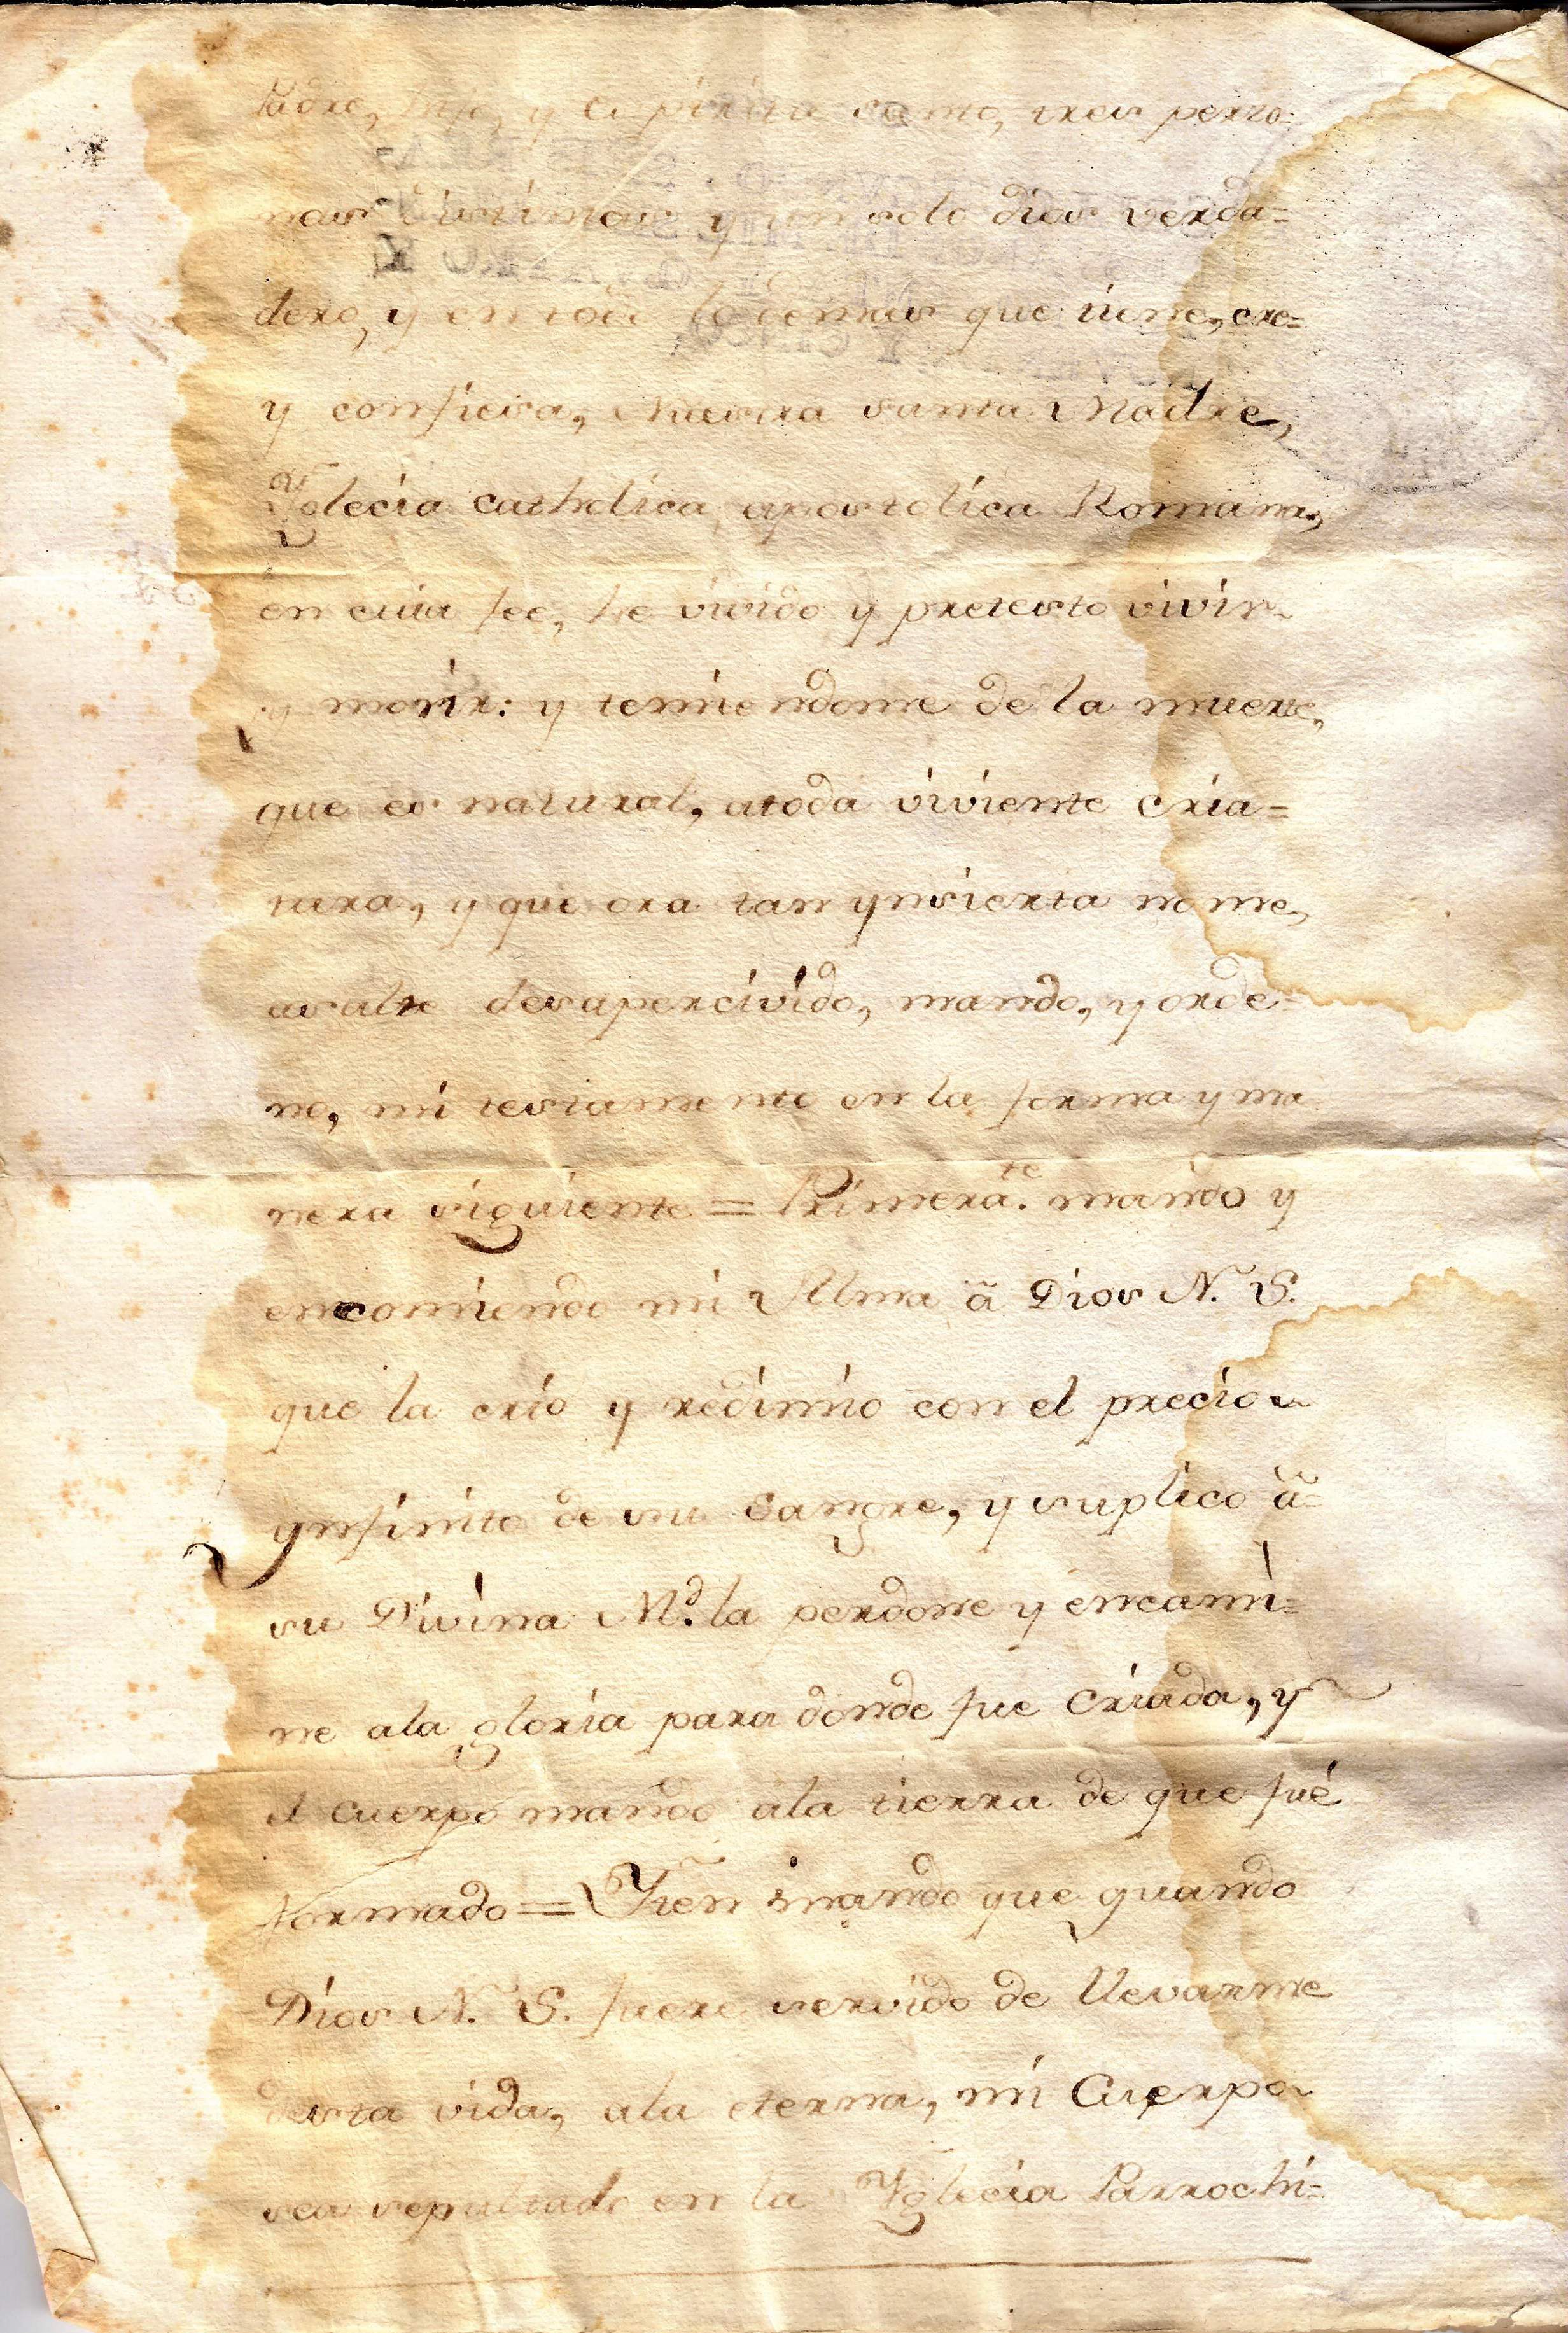 Padre, hijo, y espiritu santo, tres perso=
nas distintas y un solo dios verda=
dero, y en todo lo demas que tiene, cre=
y confiesa, Nuestra santa Madre,
Yglecia catholica apostolica Romana,
en cuia fee, he vivido y protesto vivir
y morir: y temiendome de la muerte,
que es natural, atoda viviente cria=
tura, y que ora tan ynsierta no me,
asalte desapercivido, mando, y orde=
no, mi testamento en la forma y ma
nera siguiente = Primera.te mando y
encomiendo mi Alma ã Dios N. S.
que la crió y redimio con el precio
ynfinito de su Sangre, y suplico ã
su Divina M.d la perdone y encami=
ne ala gloria para donde fue Criada, y
el cuerpo mando ala tierra de que fué
formado = Yten mando que quando
Dios N. S. fuere servido de llevarme
desta vida, ala eterna, mi Cuerpo
sea sepultado en la Yglecia Parrochi=